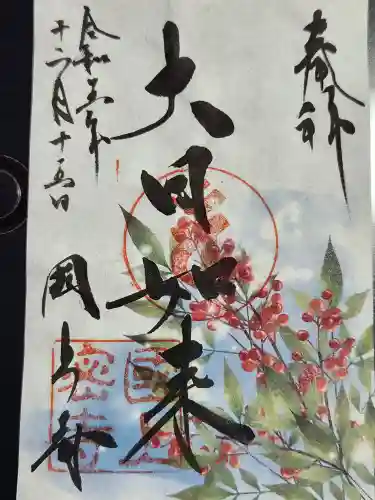 奉拝
大日如来
令和五年
十二月十五日
国上寺